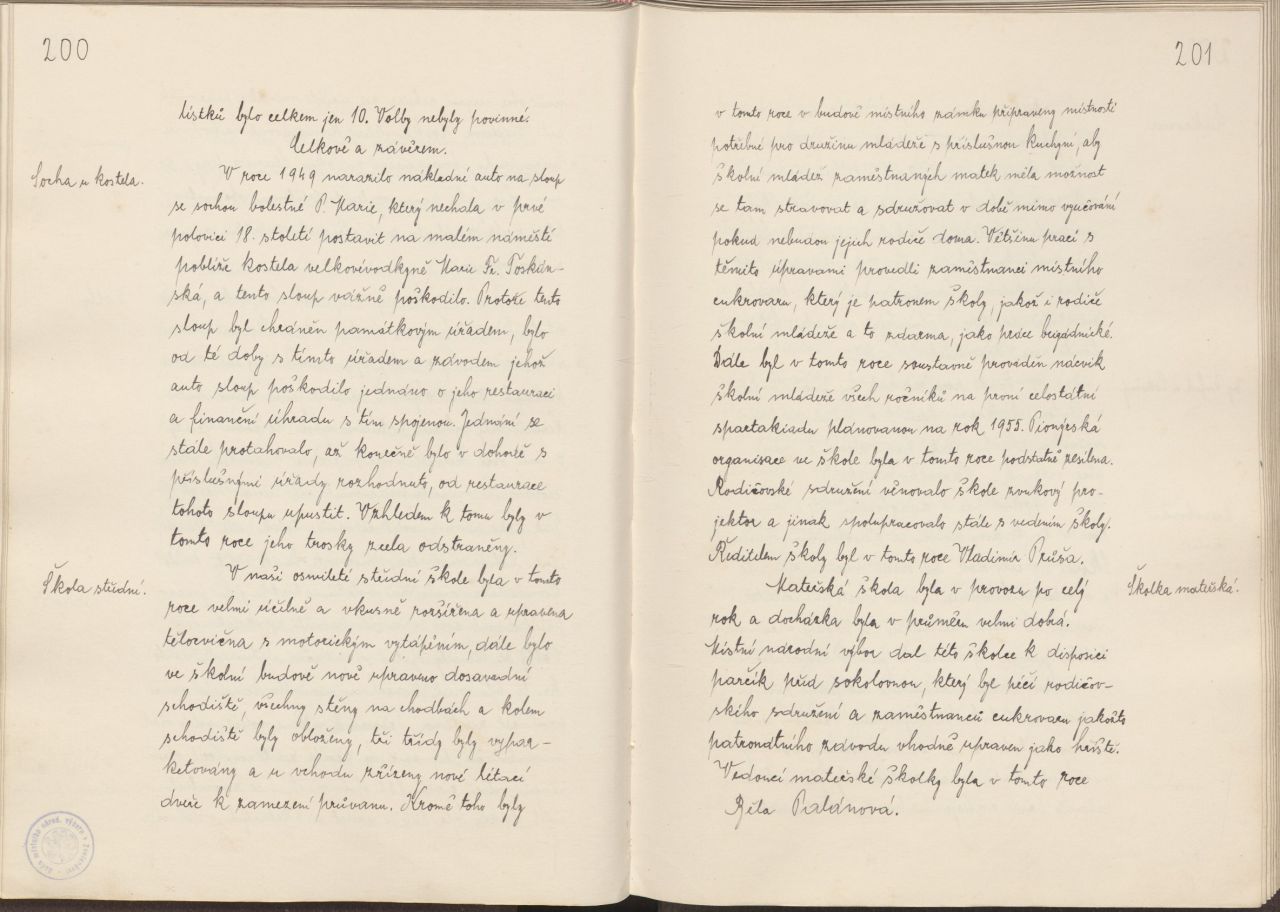 200
lístků bylo celkem jen 10. Volby nebyly povinné.
Celkově a závěrem.
Socha u kostela.
V roce 1949 narazilo nákladní auto na sloup
se sochou bolestné P. Marie, který nechala v prvé
polovici 18. století postavit na malém náměstí
poblíže kostela velkovévodkyně Marie Fr. Toskán-
ská, a tento sloup vážně poškodilo. Protože tento
sloup byl chráněn památkovým úřadem, bylo
od té doby s tímto úřadem a závodem jehož
auto sloup poškodilo jednáno o jeho restauraci
a finanční úhradu s tím spojenou. Jednání se
stále protahovalo, až konečně bylo v dohodě s
příslušnými úřady rozhodnuto, od restaurace
tohoto sloupu upustit. Vzhledem k tomu byly v
tomto roce jeho trosky zcela odstraněny.
Škola střední.
V naší osmileté střední škole byla v tomto
roce velmi účelně a vkusně rozšířena a upravena
tělocvična s motorickým vytápěním, dále bylo
ve školní budově nově upraveno dosavadní
schodiště, všechny stěny na chodbách a kolem
schodiště byly obloženy, tři třídy byly vypar-
ketovány a u vchodu zřízeny nové lítací
dveře k zamezení průvanu. Kromě toho byly
201
v tomto roce v budově místního zámku připraveny místnosti
potřebné pro družinu mládeže s příslušnou kuchyní, aby
školní mládež zaměstnaných matek měla možnost
se tam stravovat a sdružovat v době mimo vyučování
pokud nebudou jejich rodiče doma. Většinu prací s
těmito úpravami provedli zaměstnanci místního
cukrovaru, který je patronem školy, jakož i rodiče
školní mládeže a to zdarma, jako práce brigádnické.
Dále byl v tomto roce soustavně prováděn nácvik
školní mládeže všech ročníků na první celostátní
spartakiadu plánovanou na rok 1955. Pionýrská
organisace ve škole byla v tomto roce podstatně zesílena.
Rodičovské sdružení věnovalo škole zvukový pro-
jektor a jinak spolupracovalo stále s vedením školy.
Ředitelem školy byl v tomto roce Vladimír Průša.
Školka mateřská.
Mateřská škola byla v provozu po celý
rok a docházka byla v průměru velmi dobrá.
Místní národní výbor dal této školce k disposici
parčík před sokolovnou, který byl péčí rodičov-
ského sdružení a zaměstnanců cukrovaru jakožto
patronátního závodu vhodně upraven jako hřiště.
Vedoucí mateřské školky byla v tomto roce
Běla Balánová.